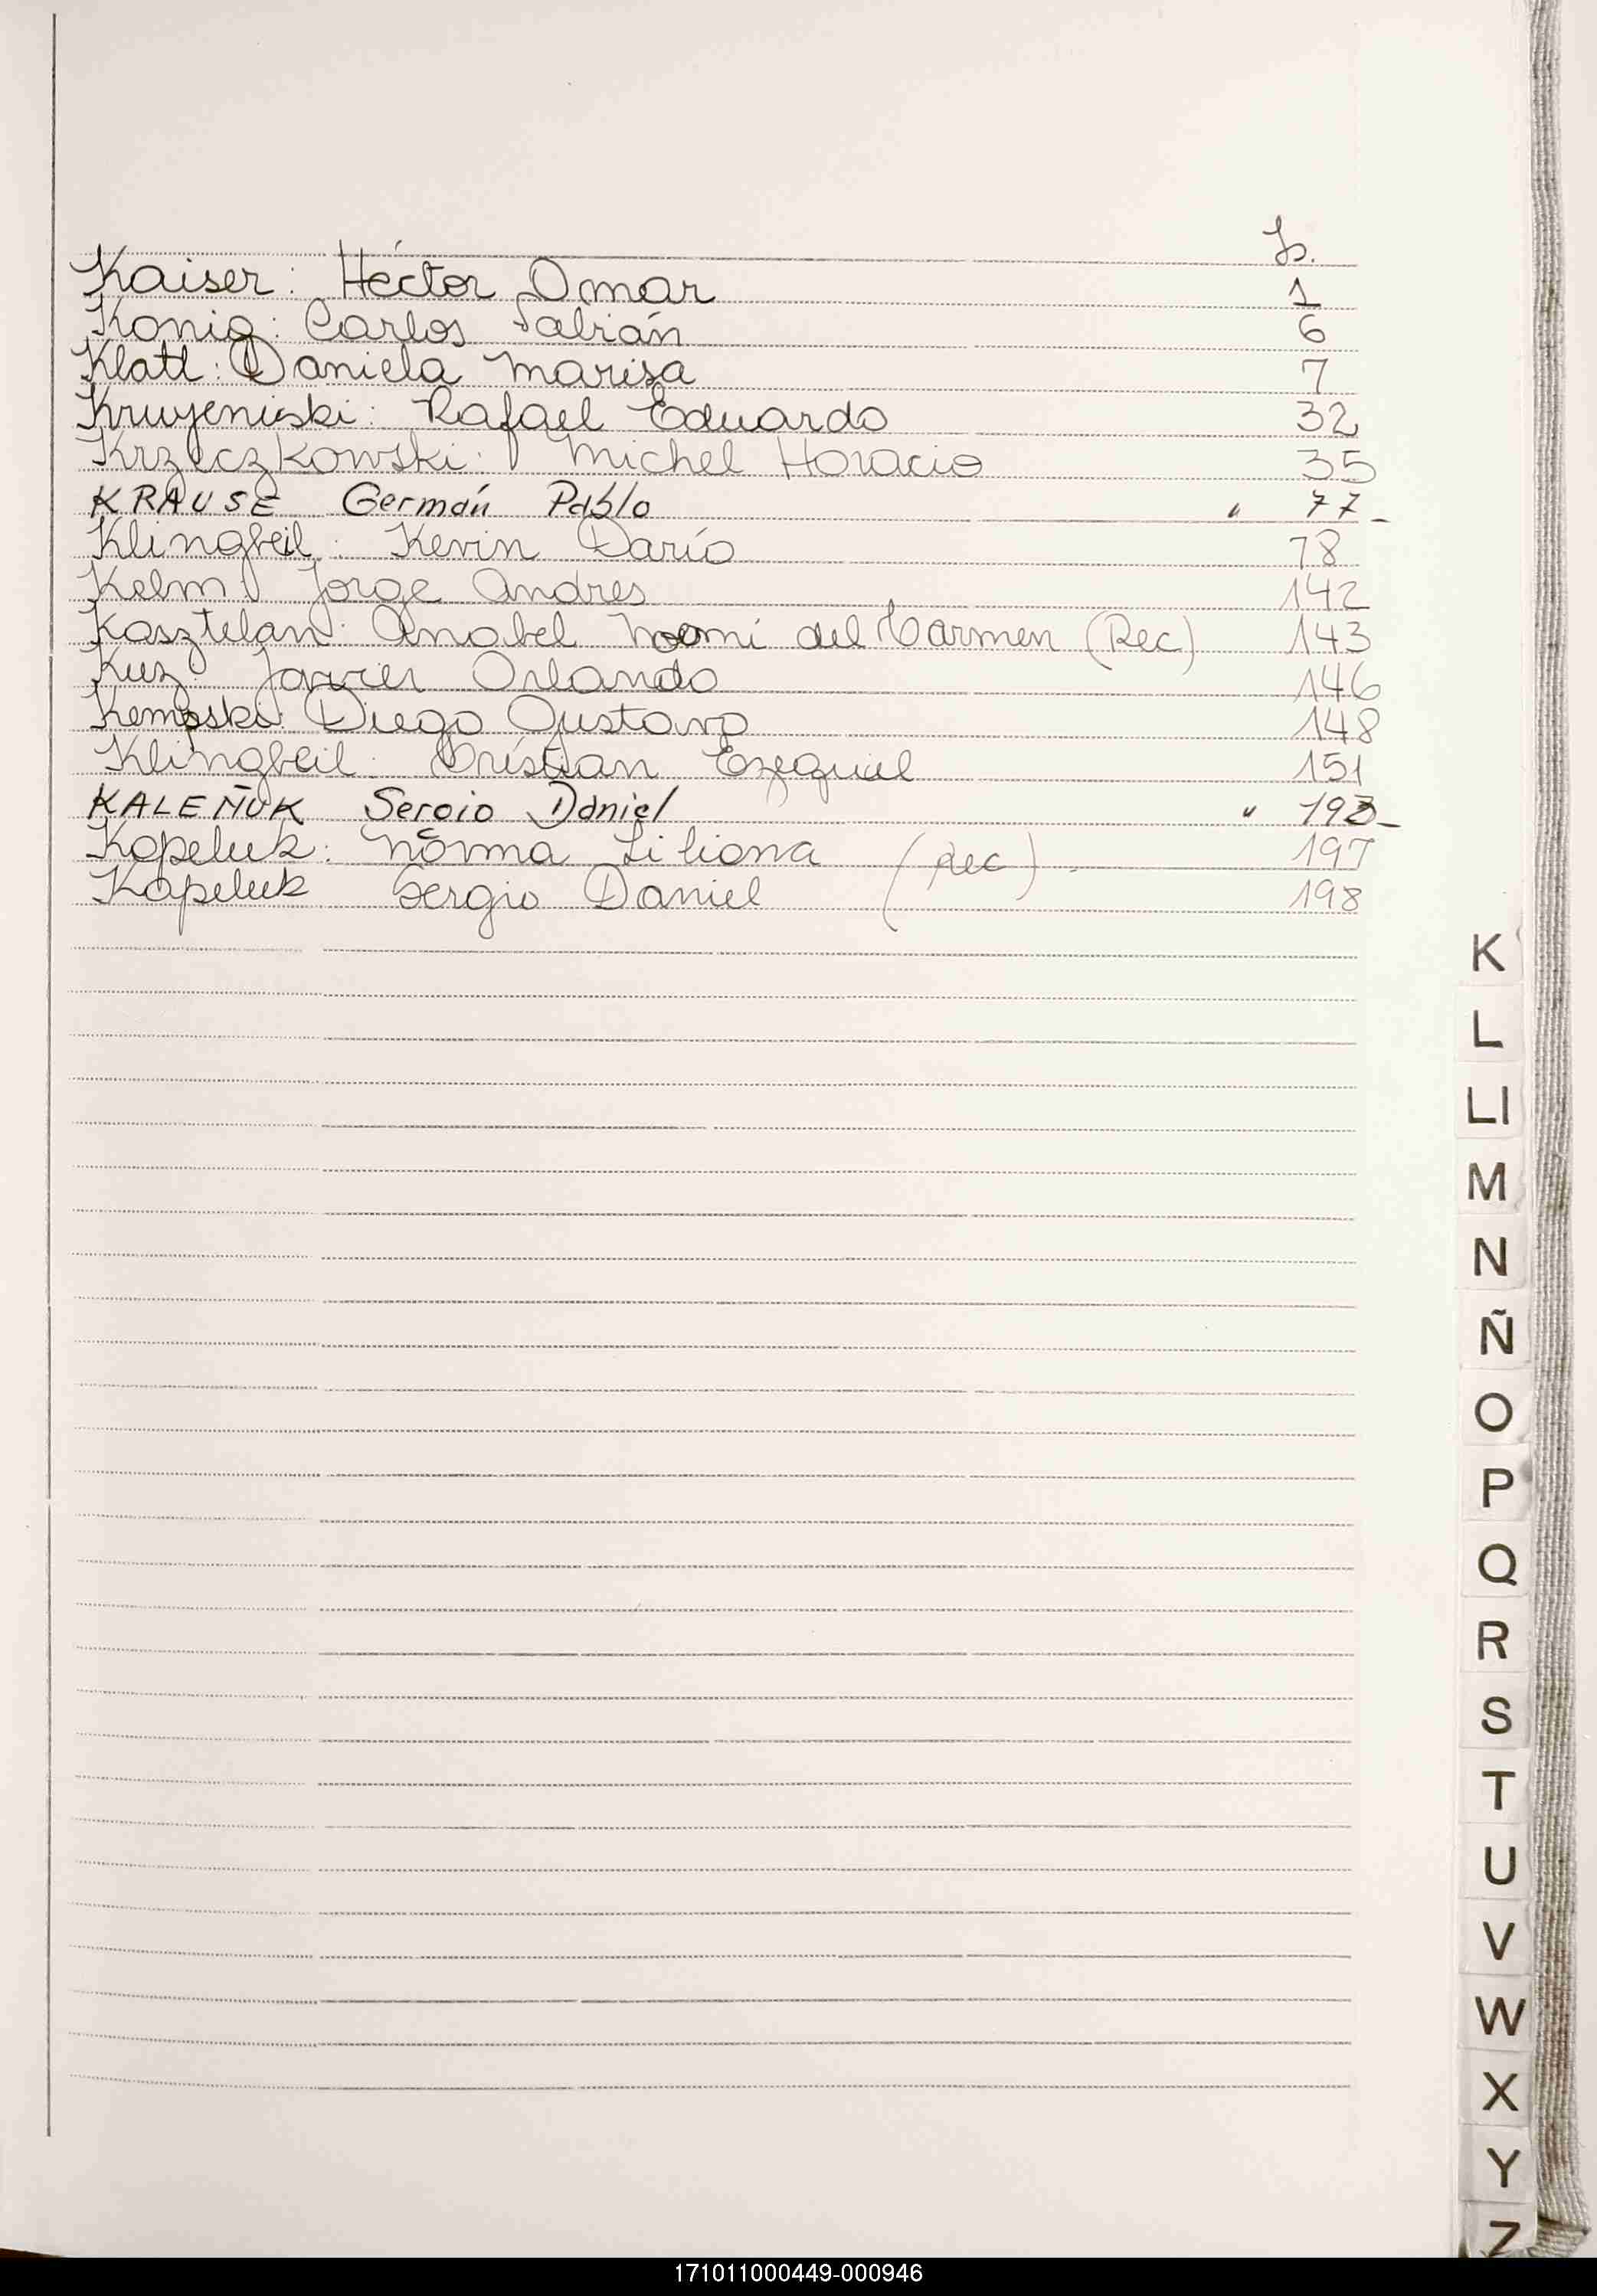 Kaiser: Héctor Omar 1
Konig: Carlos Fabián 6
Klatt: Daniela Marisa 7
Rafael Eduardo 32
Krzeczkowski: Michel Horacio 35
KRAUSE Germán Pablo " 77-
Klingbeil: Kevin Darío 78
Kelm: Jorge Andres 142
Kasztelan: Anabel Noemi del Carmen (Rec) 143
Kuz: Javier Orlando 146
Kempski: Diego Gustavo 148
Klingbeil: Cristian Ezequiel 151
KALEÑUK Sergio Daniel "
Kopeluk: Norma Liliana (Rec) 197
Kapeluk Sergio Daniel ( 198
K
L
Ll
M
N
Ñ
O
P
Q
R
S
T
U
V
W
X
Y
Z
171011000449-000946